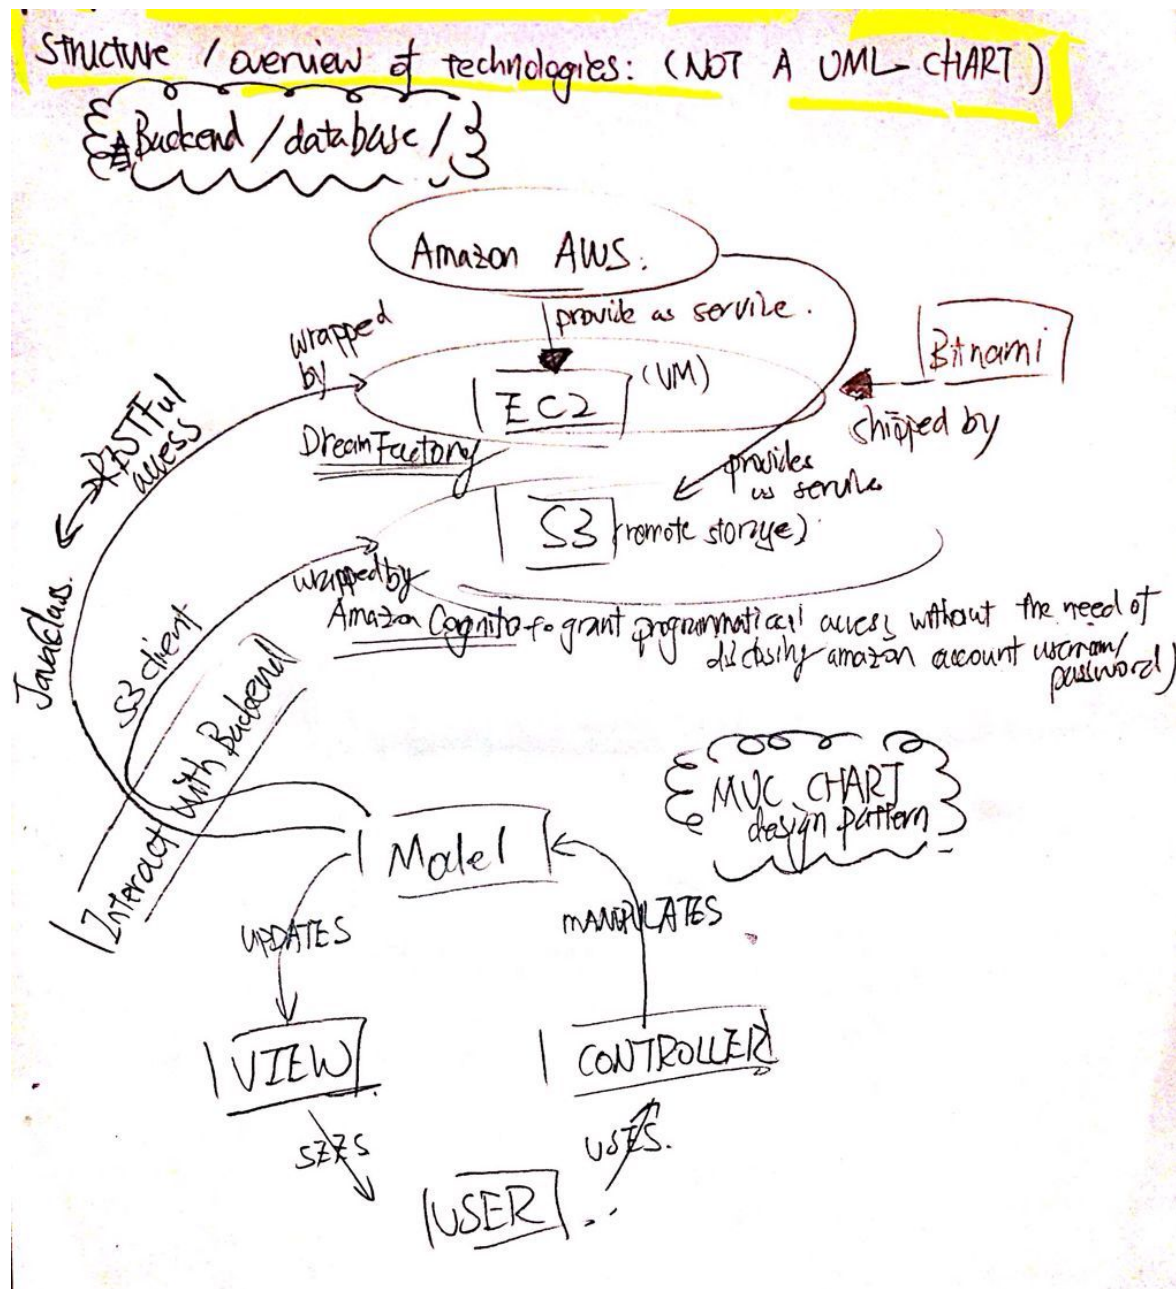 Structure / overview of technologies: (NOT A UML CHART)
Backend / database /
Amazon AWS.
provide as service.
wrapped
by
Bitnami
EC2
(VM)
shipped by
DreamFactory
RESTful
access
provides
as service
S3
(remote storage)
wrapped by
Amazon Cognito to grant programmatical access without the need of
disclosing amazon account username/
password)
JavaClass.
S3 client
Interact with Backend
MVC CHART
design pattern
Model
UPDATES
MANIPULATES
VIEW
CONTROLLER
SEES
USES.
USER